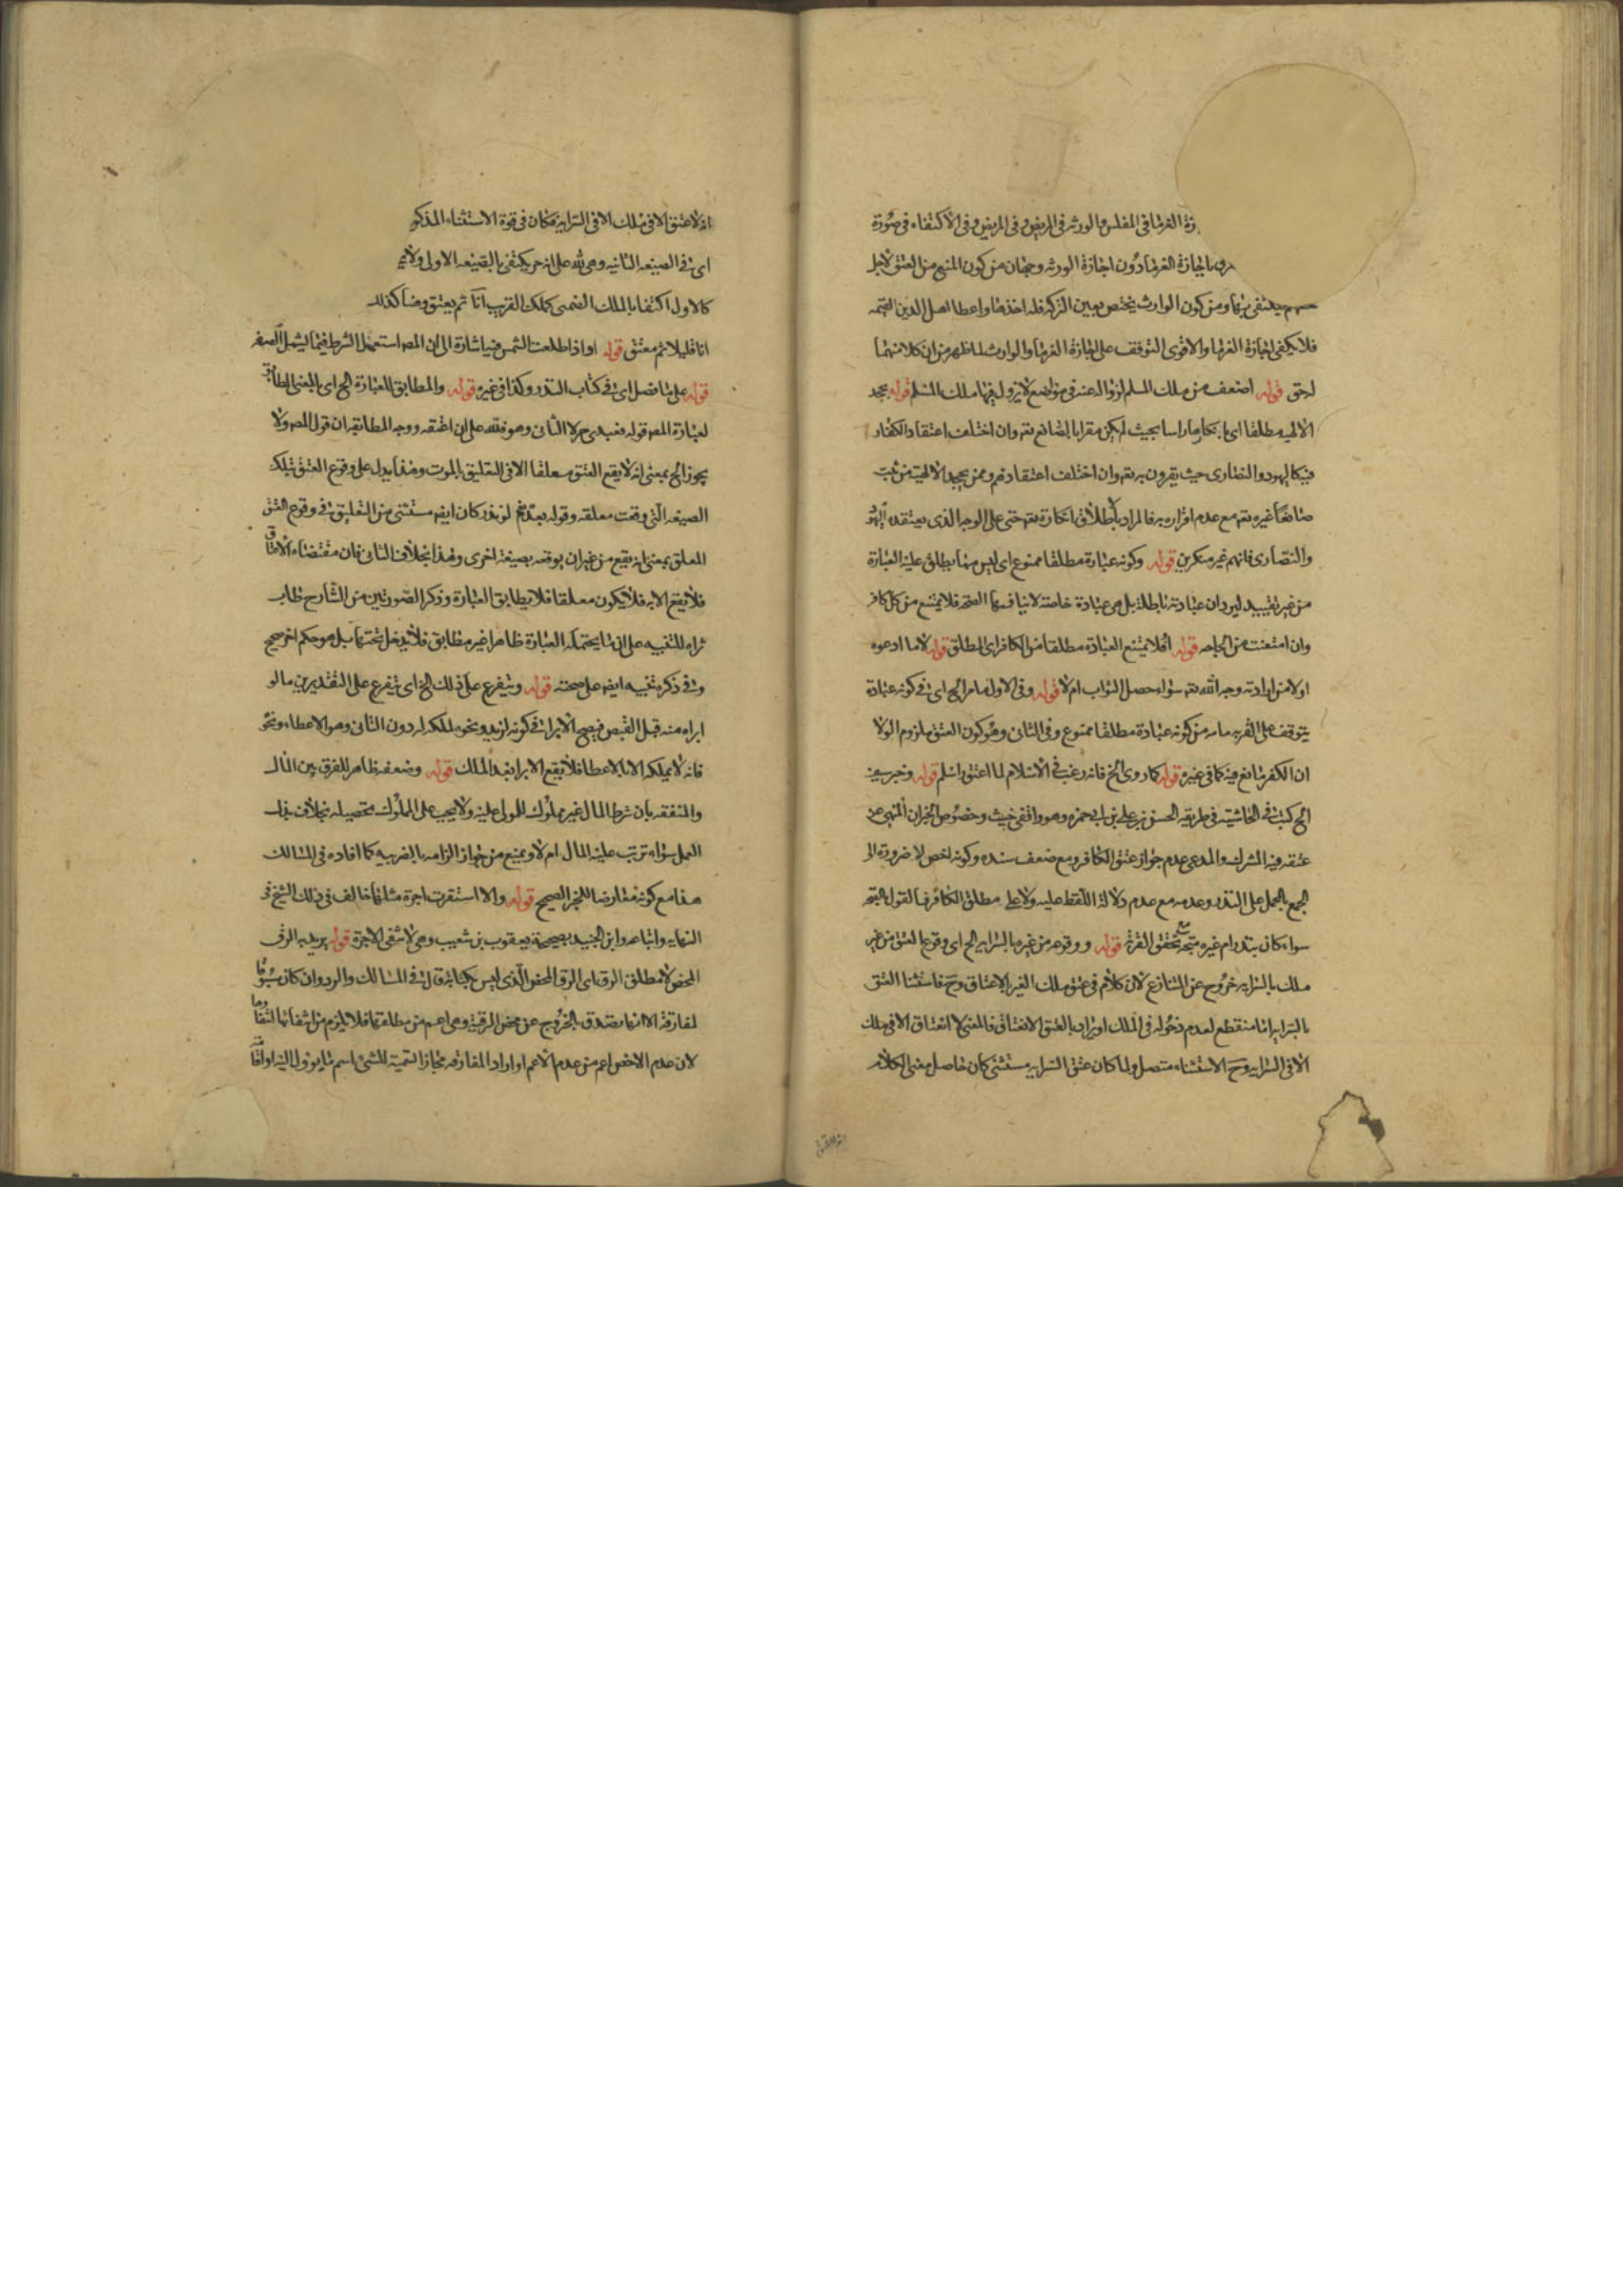 زة الغرما فى المفلس والورثه فى المريض وفى المريض وفى الاكتفاء فى صورة
باجازة الغرما دون اجازة الورثه وجهان من كون المنع من العتق لاجل
يكتفى بها ومن كون الوارث يختص بعين التركه فله اخذها واعطا اهل الدين القيمه
فلا يكفى اجازة الغرما والاقوى التوقف على اجازة الغرما والوارث لما ظهر من ان كلا منهما
له حق قوله اضعف من ملك المسلم لزواله عنه فى مواضع لا يزول فيها ملك المسلم قوله بجحد
الالهيه مطلقا اى بانكارها راسا بحيث لم يكن مقرا بالصانع تعه وان اختلف اعتقاد الكفار
فيه كاليهود والنصارى حيث يقرون به تعه وان اختلف اعتقادهم وممن يجحد الالهية من يثبت
صانعا غيره تعه مع عدم اقراره به فالمراد باطلاق انكاره تعه حتى على الوجه الذى يعتقده اليهود
والنصارى فانهم غير منكرين قوله وكونه عبادة مطلقا ممنوع اى ليس مما يطلق عليه العبادة
من غير تقييد ليرد ان عباداته باطلة بل هى عبادة خاصة لا ينافيها الصحه فلا يمتنع من كل كافر
وان امتنعت من الجاحد قوله افلا يمتنع العبادة مطلقا من الكافر اى المطلق قوله لا ما ادعوه
اولا من ارادته وجه الله تعه سواء حصل الثواب ام لا قوله وفى الاول ما مر الخ اى فى كونه عبادة
يتوقف على القربه ما مر من كونه عبادة مطلقا ممنوع وفى الثانى وهو كون العتق ملزوم الولا
ان الكفر مانع فيه كما فى غيره قوله كما روى الخ فانه رغب فى الاسلام لما اعتق واسلم قوله وخبر سيف
الخ كتب فى الحاشية فى طريقه الحسن بن على بن ابى حمزه وهو واقفى خبيث وخصوص الخبر ان النهى عن
عتقه فيه المشرك والمدعى عدم جواز عتق الكافر ومع ضعف سنده وكونه اخص لا ضرورة الى
الجمع بالحمل على النذر وعدمه مع عدم دلالة اللفظ عليه ولا على مطلق الكافر فالقول بالصحه
سواء كان بنذر ام غيره متجه مع تحقق القربة قوله ووقوعه من غيره بالسرايه الخ اى وقوع العتق من غير
ملك بالسرايه خروج عن المتنازع لان كلامه فى عتق ملك الغير بالاعتاق وح فاستثنا العتق
بالسرايه اما منقطع لعدم دخوله فى الملك او يراد بالعتق الانعتاق فالمعنى لا انعتاق الا فى ملك
الا فى السرايه وح الاستثناء متصل ولما كان عتق السرايه مستثنى كان حاصل معنى الكلام
انه لا عتق الا فى ملك الا فى السرايه فكان فى قوة الاستثناء المذكو
اى فى الصيغه الثانيه وهى لله على انه حر يكتفى بالصيغه الاولى ولانه
كالاول اكتفا بالملك الضمنى كملك القريب آنا ثم يعتق وهنا كذلك
انا قليلا ثم معتق قوله او اذا طلعت الشمس فيه اشارة الى ان المص استعمل الشرط فيما يشمل الصفه
قوله على ما فصل اى فى كتاب النذر وكذا فى غيره قوله والمطابق للعبارة الخ اى بالمعنى المطابق
لعبارة المص قوله فعبدى حر لا الثانى وهو فلله على ان اعتقه ووجه المطابقه ان قول المص ولا
يجوز الخ بمعنى انه لا يقع العتق معلقا الا فى التعليق بالموت وهذا يدل على وقوع العتق بتلك
الصيغه التى وقعت معلقه وقوله بعد نعم لو نذر كان ايضه مستثنى من التعليق فى وقوع العتق
المعلق بمعنى انه يقع من غير ان يوقعه بصيغة اخرى وهذا بخلاف الثانى فان مقتضاه الاعتاق
فلا يقع الا به فلا يكون معلقا فلا يطابق العبارة وذكر الصورتين من الشارح طاب
ثراه للتنبيه على ان ما يحتمله العبارة ظاهرا غير مطابق فلا يدخل تحتها بل هو حكم اخر صحيح
وفى ذكره تنبيه ايضه على صحته قوله ويتفرع على ذلك الخ اى يتفرع على التقديرين ما لو
ابراه منه قبل القبض فيصح الابراء فى كونه لزيد ونحوه لملكه له دون الثانى وهو الاعطاء ونحو
فانه لا يملكه الا بالاعطا فلا يقع الابرا بعد الملك قوله وضعفه ظاهر للفرق بين المال
والمنفعه بان شرط المال غير مملوك للمولى عليه ولا يجب على المملوك تحصيله بخلاف بذل
العمل سواء ترتب عليه المال ام لا ويمنع من جواز الزامه بالضريبه كما افاده فى المسالك
هذا مع كونه معارضا للخبر الصحيح قوله والا استقرت اجرة مثلها خالف فى ذلك الشيخ فى
النهايه واتباعه وابن الجنيد بصحيحة يعقوب بن شعيب وهى لا تنفى الاجرة قوله يريد به الرق
المحض لا مطلق الرق اى الرق المحض الذى ليس بكتابة قال فى المسالك والرد وان كان مسبوقا
لمفارقة الا انها يصدق بالخروج عن محض الرقية وهى اعم من مطلقها فلا يلزم من انتفائها انتفاوها
لان عدم الاخص اعم من عدم الاعم او اراد المفارقه مجازا تسمية للشئ باسم ما يوول اليه او اقا